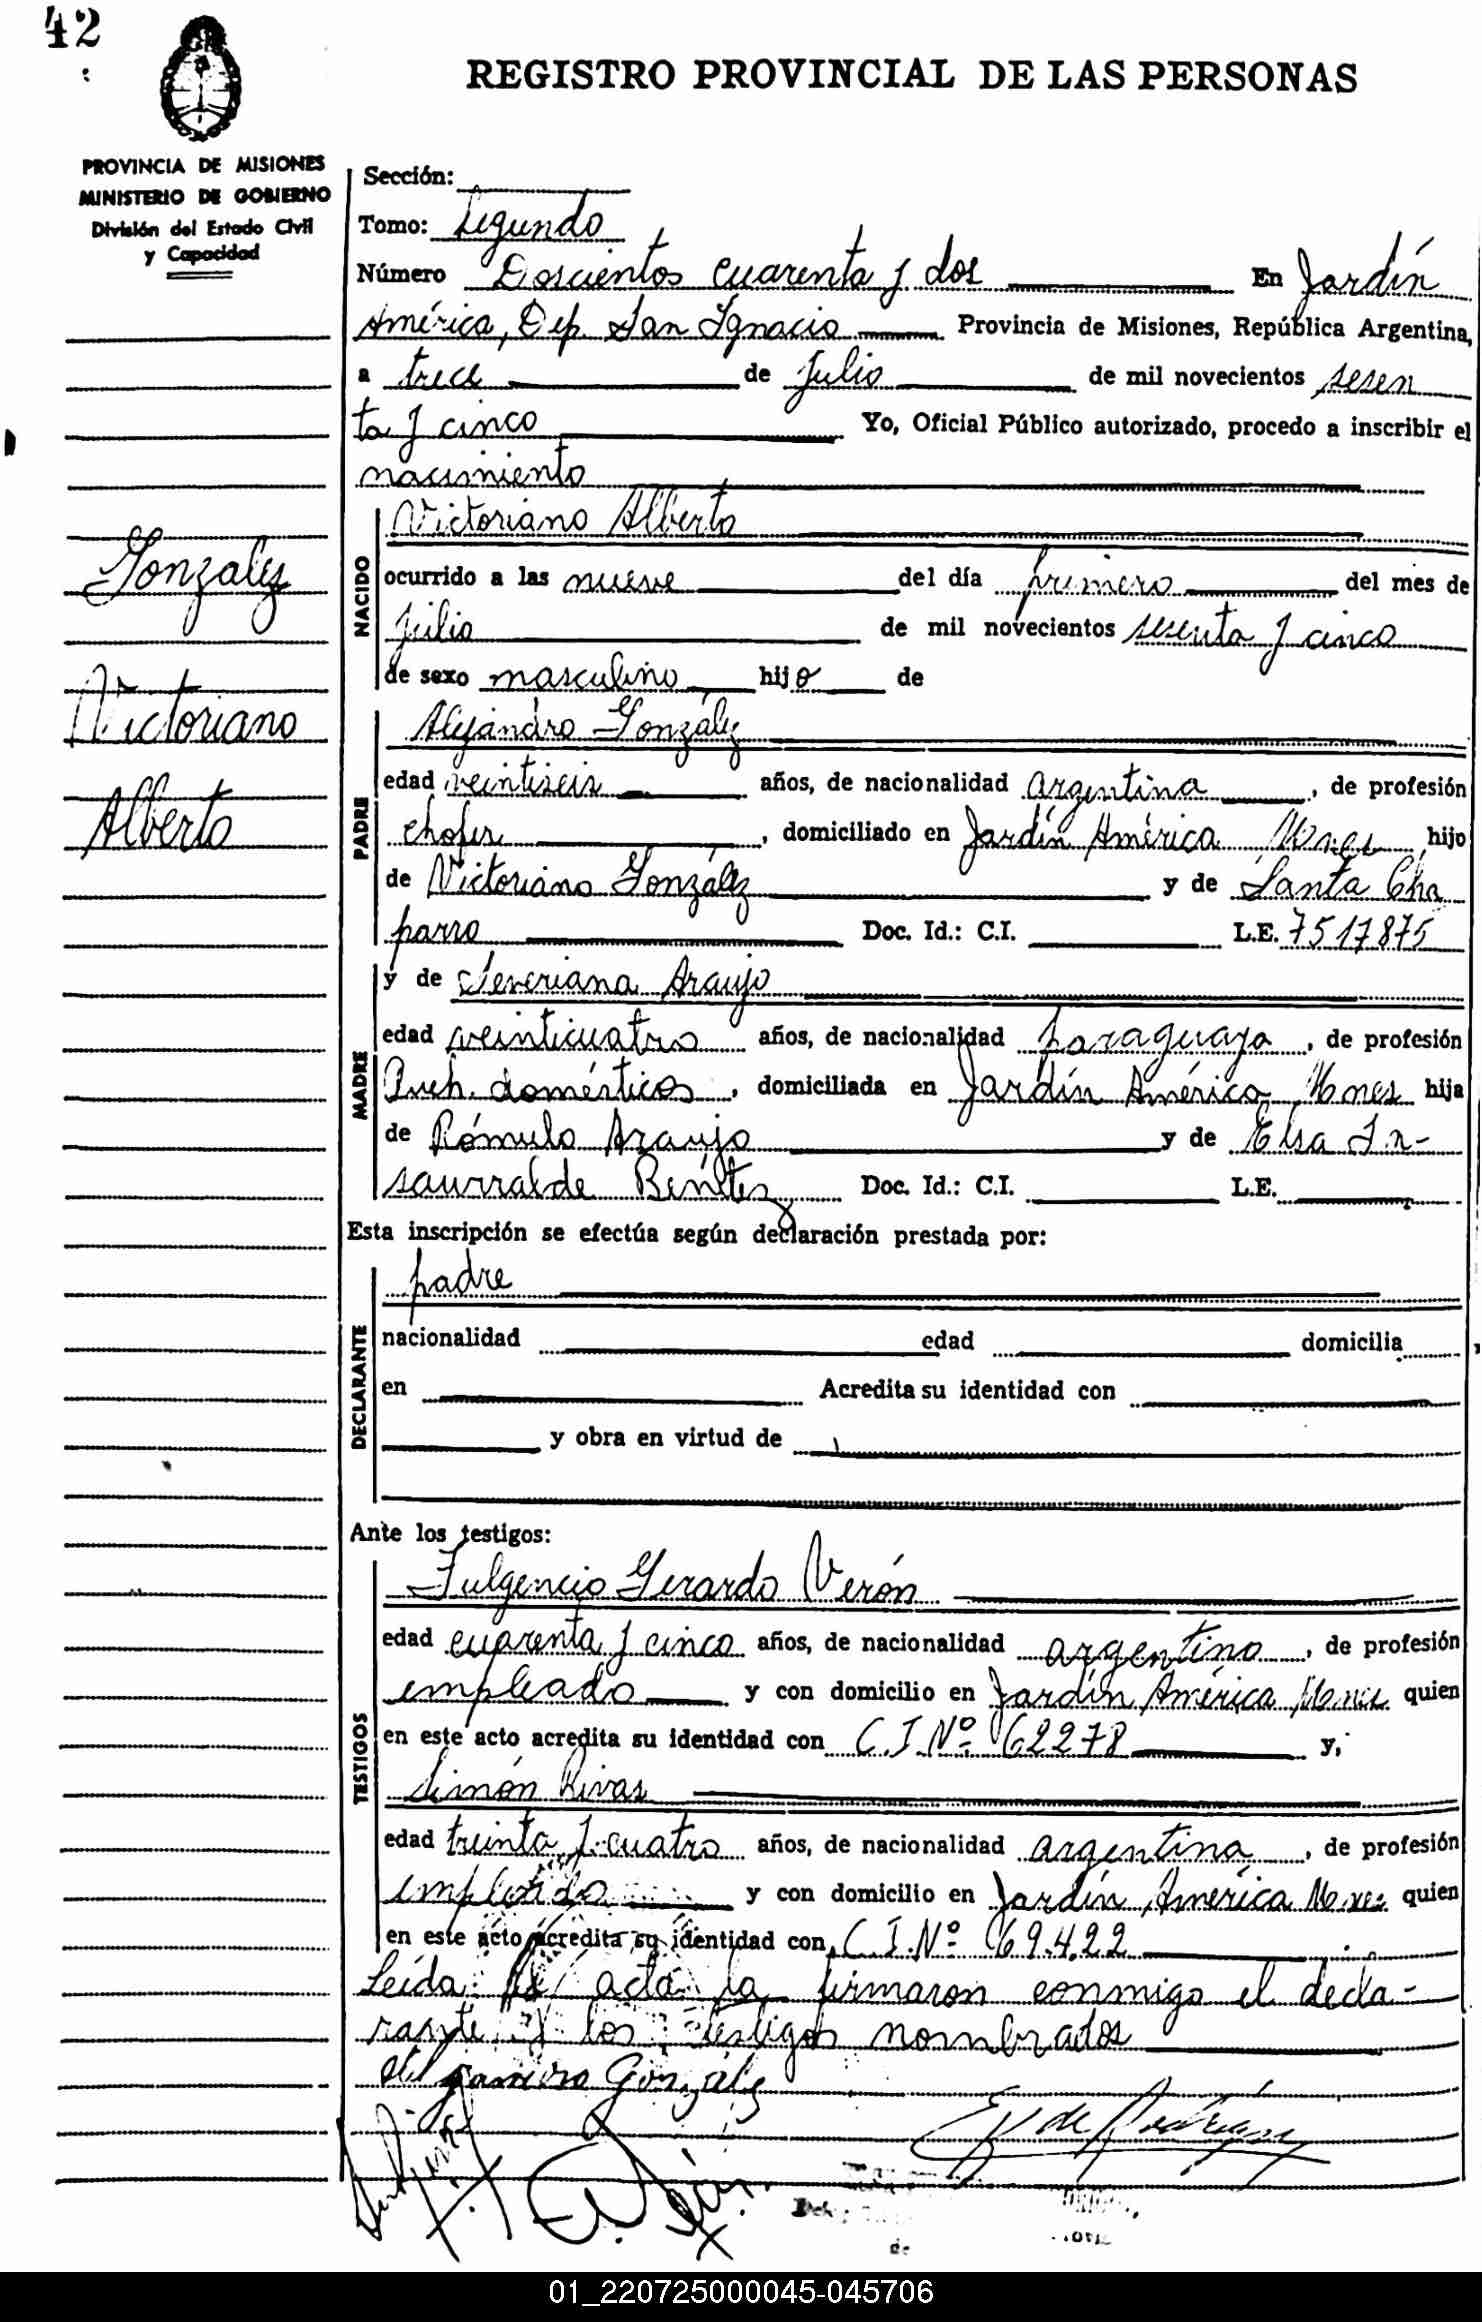 42
REGISTRO PROVINCIAL DE LAS PERSONAS
PROVINCIA DE MISIONES
MINISTERIO DE GOBIERNO
División del Estado Civil
y Capacidad
Gonzalez
Victoriano
Alberto
Sección:
Tomo: Segundo
Número Doscientos cuarenta y dos En Jardín
América, Dep. San Ignacio Provincia de Misiones, República Argentina,
a trece de Julio de mil novecientos sesen
ta y cinco Yo, Oficial Público autorizado, procedo a inscribir el
nacimiento
NACIDO
Victoriano Alberto
ocurrido a las nueve del día primero del mes de
Julio de mil novecientos sesenta y cinco
de sexo masculino hijo de
PADRE
Alejandro González
edad veintiseis años, de nacionalidad argentina, de profesión
chofer, domiciliado en Jardín América Mnes hijo
de Victoriano González y de Santa Cha
parro Doc. Id.: C.I. L.E. 7517875
MADRE
y de Severiana Araujo
edad veinticuatro años, de nacionalidad paraguaya, de profesión
Queh. domésticos, domiciliada en Jardín América Mnes hija
de Rómulo Araujo y de Elsa In-
saurralde Benítez Doc. Id.: C.I. L.E.
Esta inscripción se efectúa según declaración prestada por:
DECLARANTE
padre
nacionalidad edad domicilia
en Acredita su identidad con
y obra en virtud de
Ante los testigos:
TESTIGOS
Fulgencio Gerardo Verón
edad cuarenta y cinco años, de nacionalidad argentino, de profesión
empleado y con domicilio en Jardín América Mnes quien
en este acto acredita su identidad con C.I. Nº 62278 y,
Simón Rivas
edad treinta y cuatro años, de nacionalidad argentina, de profesión
empleado y con domicilio en Jardín América Mnes quien
en este acto acredita su identidad con C.I. Nº 69.422
Leída el acta la firmaron conmigo el decla-
rante y los testigos nombrados
González
01_220725000045-045706